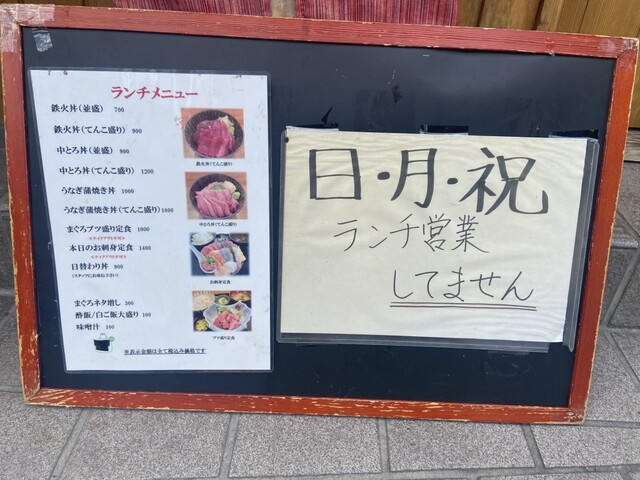 ランチメニュー
鉄火丼(並盛) 700
鉄火丼(てんこ盛り) 900
中とろ丼(並盛) 900
中とろ丼(てんこ盛り) 1200
うなぎ蒲焼き丼 1000
うなぎ蒲焼き丼(てんこ盛り) 1600
まぐろブツ盛り定食 1000
<テイクアウト不可>
本日のお刺身定食 1400
<テイクアウト不可>
日替わり丼 900
(スタッフにお尋ね下さい)
まぐろネタ増し 300
酢飯/白ご飯大盛り 100
味噌汁 100
※表示金額は全て税込み価格です
鉄火丼(てんこ盛り)
中とろ丼(てんこ盛り)
お刺身定食
ブツ盛り定食
日・月・祝
ランチ営業
してません